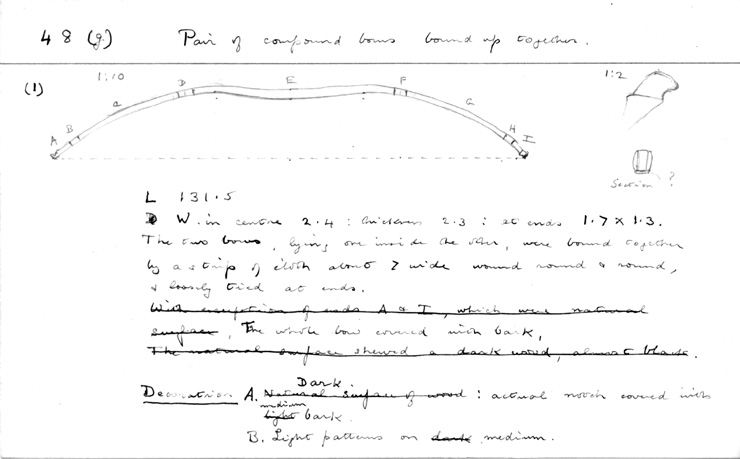 48 (g.) Pair of compound bows bound up together.
(1) 1:10 1:2
A B a D E F G H I
Section ?
L 131.5
D W. in centre 2.4 : thickness 2.3 : at ends 1.7 x 1.3.
The two bows, lying one inside the other, were bound together
by a strip of cloth about 7 wide wound round & round,
& loosely tied at ends.
With exception of ends A & I, which were natural
surface, The whole bow covered with bark,
The natural surface shewed a dark wood, almost black.
Dark.
Decoration A. Natural surface of wood : actual notch covered with
medium
light bark.
B. Light patterns on dark medium.